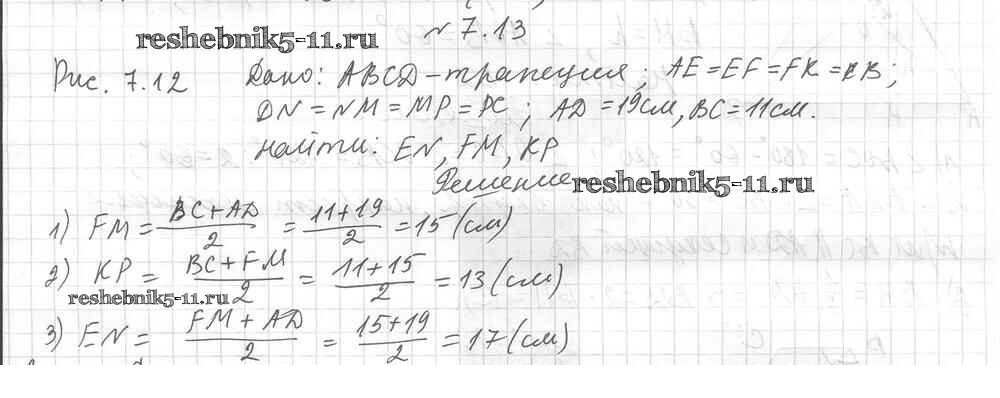 № 7.13
reshebnik5-11.ru
Рис. 7.12 Дано: ABCD-трапеция; AE=EF=FK=KB;
DN=NM=MP=PC; AD=19см, BC=11см.
Найти: EN, FM, KP
Решение reshebnik5-11.ru
1) FM = BC+AD/2 = 11+19/2 = 15 (см)
2) KP = BC+FM/2 = 11+15/2 = 13 (см)
reshebnik5-11.ru
3) EN = FM+AD/2 = 15+19/2 = 17 (см)